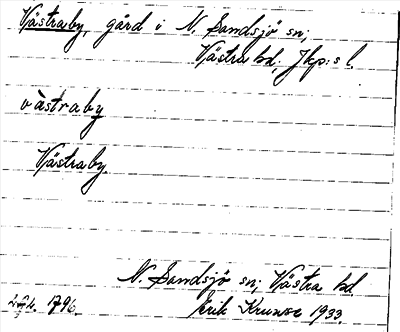 Västraby, gård i N. Sandsjö sn;
Västra hd, Jkp:s l.
vàstraby
Västraby.
N. Sandsjö sn; Västra hd.
1796 Erik Krunse 1933